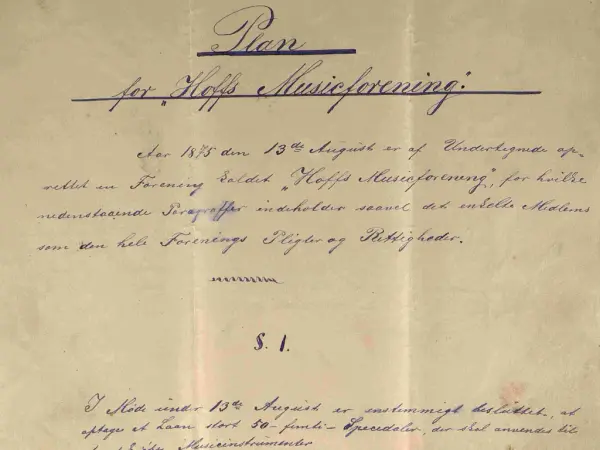 Plan
for "Hoffs Musicforening".
Aar 1875 den 13de August er af Undertegnede op-
rettet en Forening kaldet "Hoffs Musicforening", for hvilke
nedenstaaende Paragraffer indeholder saavel det enkelte Medlems
som den hele Forenings Pligter og Rettigheder.
§. 1.
I Møde under 13de August er enstemmigt besluttet, at
optage et Laan stort 50 - femti - Specedaler, der skal anvendes til
Musicinstrumenter